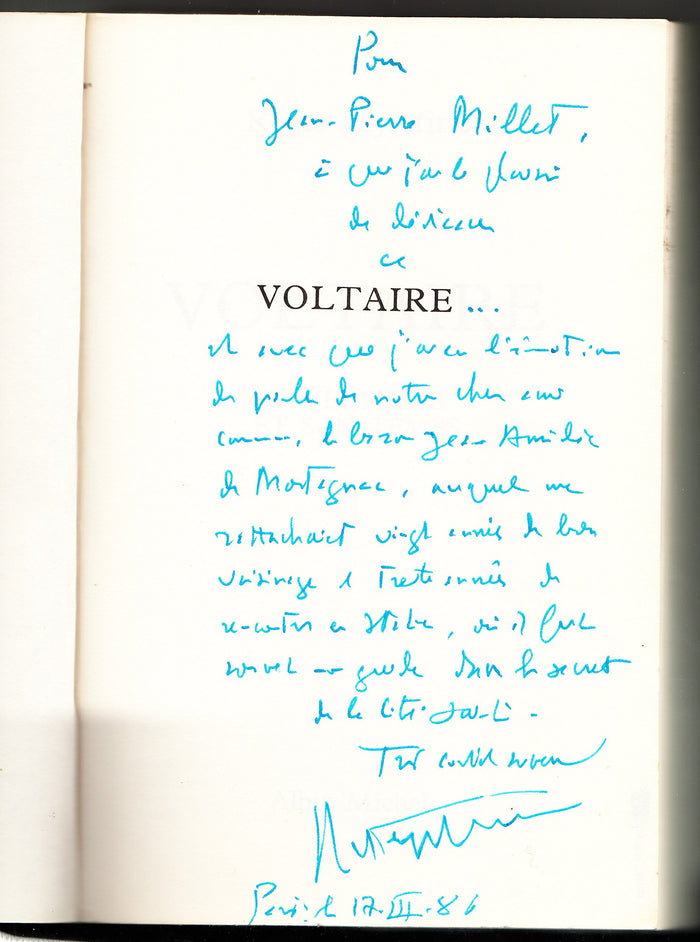 Pour
Jean-Pierre Millet,
à qui j'ai le plaisir
de dédicacer
ce
VOLTAIRE ...
et avec qui j'ai eu l'émotion
de parler de notre cher ami
commun, le baron Jean Amédée
de Mortagnac, auquel me
rattachait vingt années de bon
voisinage et trente années de
rencontres en Italie, où il fut
souvent mon guide dans le secret
de la
Très cordialement
Paris le 17.III.86